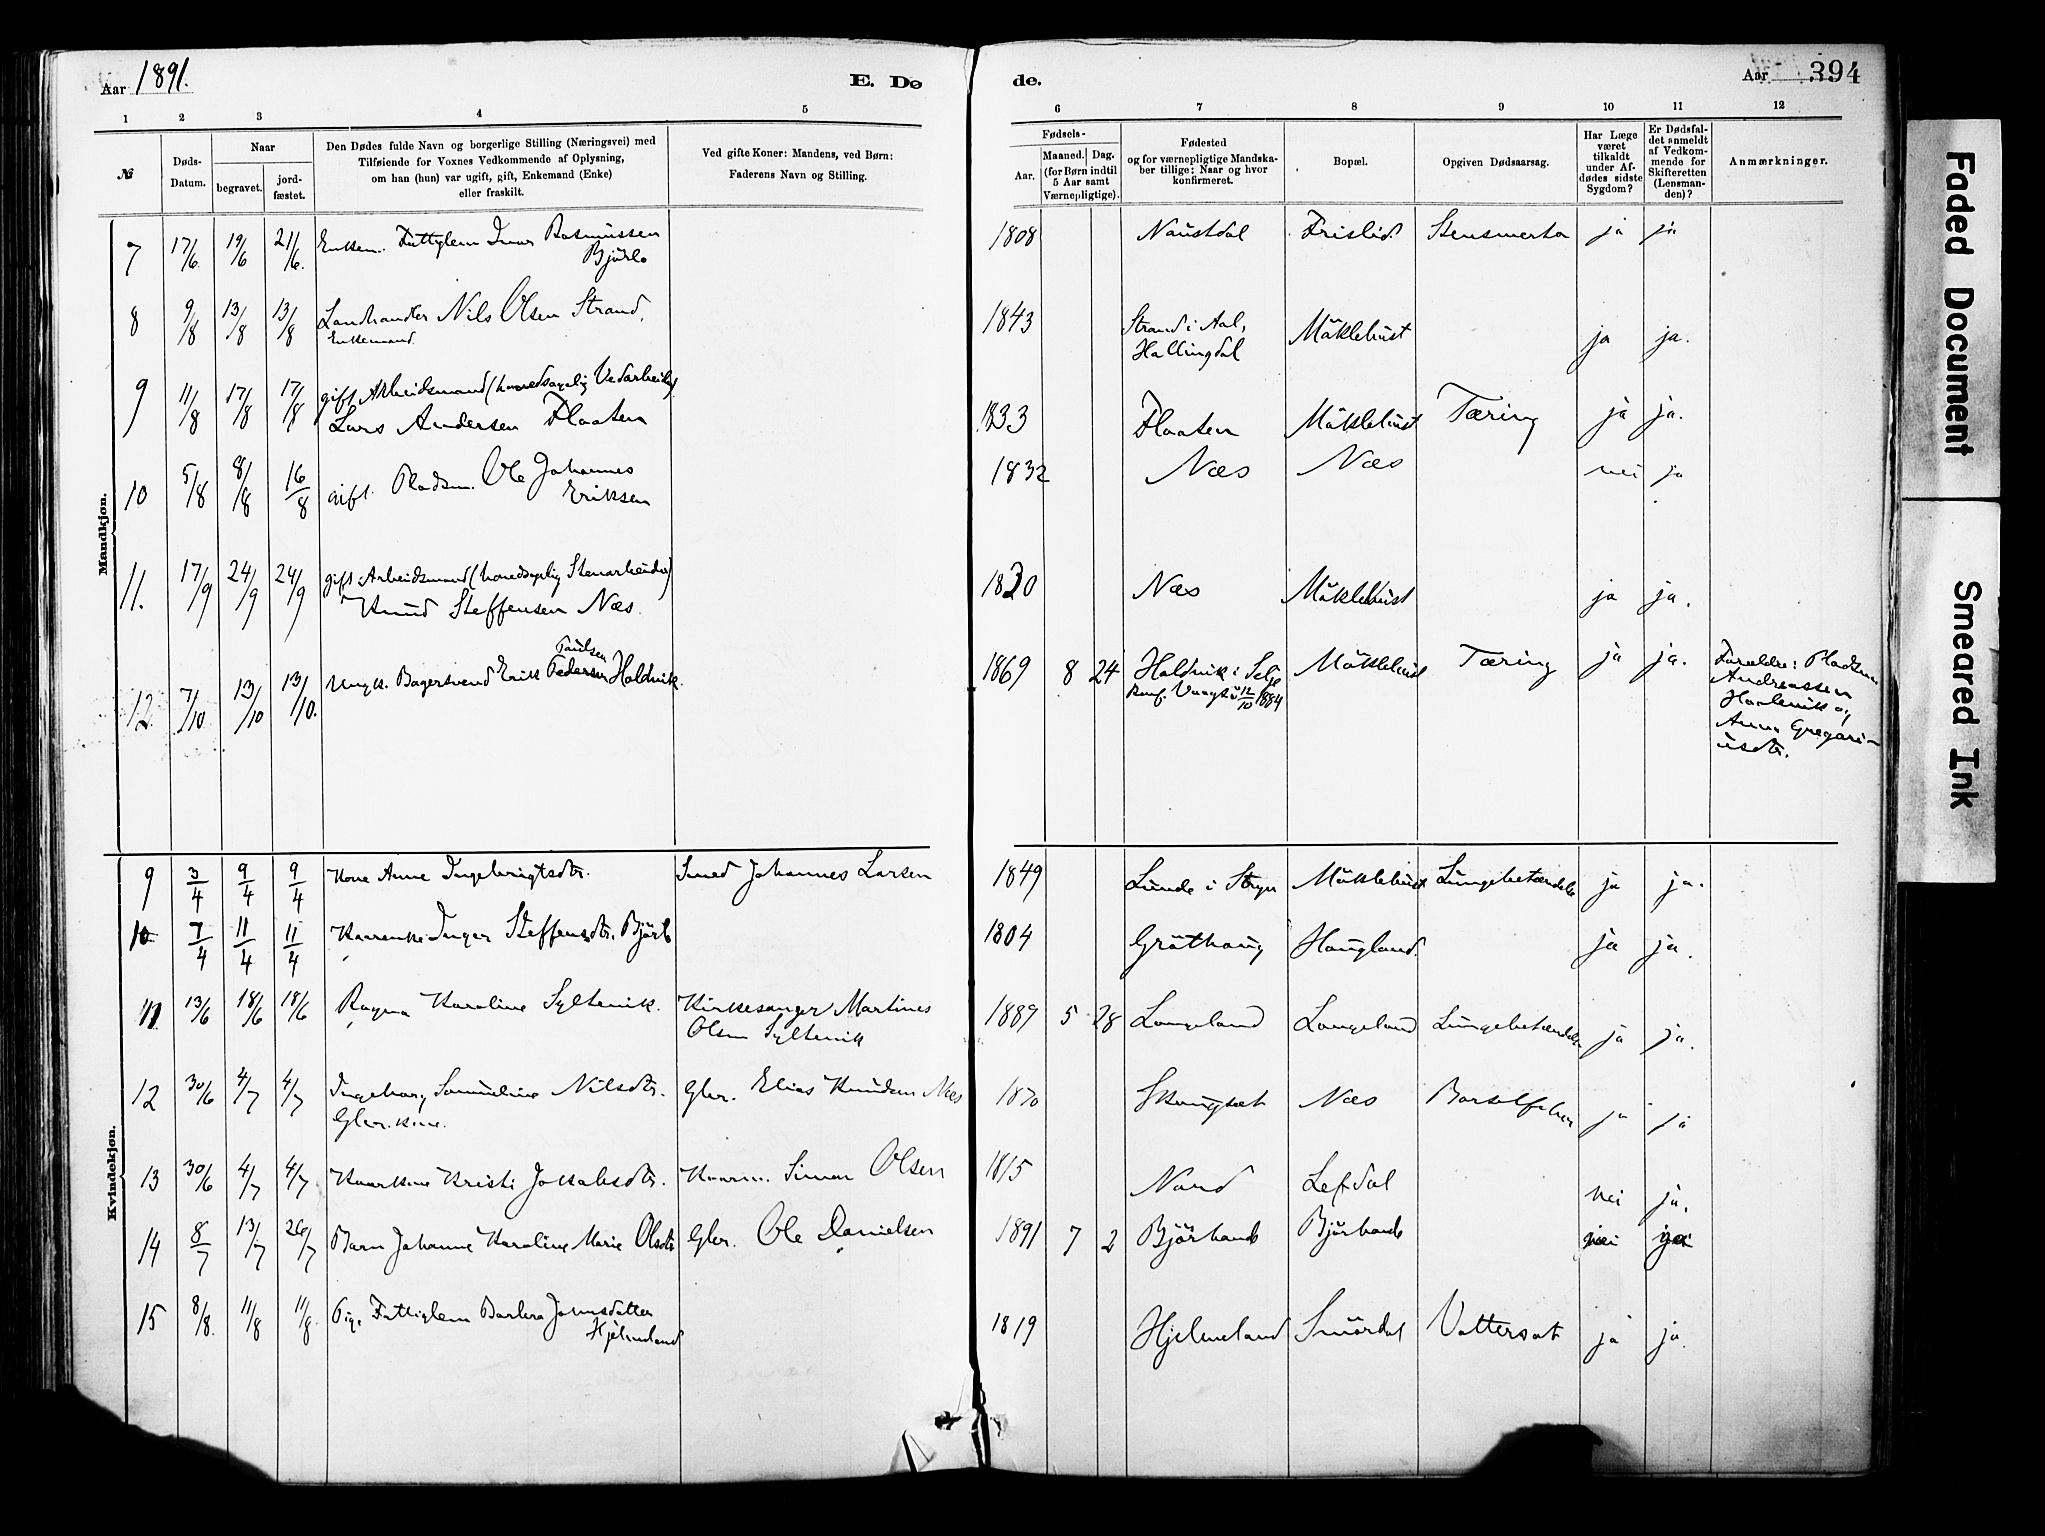 Aar 1891.
E. Dø
de.
Aar 394
1 2 3 4 5 6 7 8 9 10 11 12
№
Døds-Datum.
Naar
begravet.
jord-fæstet.
Den Dødes fulde Navn og borgerlige Stilling (Næringsvei) med
Tilføiende for Voxnes Vedkommende af Oplysning,
om han (hun) var ugift, gift, Enkemand (Enke)
eller fraskilt.
Ved gifte Koner: Mandens, ved Børn:
Faderens Navn og Stilling.
Fødsels-
Aar.
Maaned. Dag.
(for Børn indtil
5 Aar samt
Værnepligtige).
Fødested
og for værnepligtige Mandska-
ber tillige: Naar og hvor
konfirmeret.
Bopæl.
Opgiven Dødsaarsag.
Har Læge
været
tilkaldt
under Af-
dødes sidste
Sygdom?
Er Dødsfal-
det anmeldt
af Vedkom-
mende for
Skifteretten
(Lensman-
den)?
Anmærkninger.
Mandkjøn.
7 17/6. 19/6 21/6. Enkem. Fattiglem Ivar Rasmussen 1808 Naustdal Frislid. Stensmerta ja ja
Bjørlo
8 9/8 13/8 13/8 Landhandler Nils Olsen Strand, 1843 Strand i Aal, Mõklebust ja ja.
Enkemand. Hallingdal
9 11/8 17/8 17/8 gift Arbeidsmand (hovedsagelig Vedarbeider)
Lars Andersen Flaaten 1833 Flaaten Mõklebust Tæring ja ja.
10 5/8 8/8 16/8 gift. Pladsm. Ole Johannes 1832 Næs Næs nei ja
Eriksen
11. 17/9 24/9 24/9 gift Arbeidsmand (hovedsagelig Stenarbeider) 1830 Næs Mõklebust ja ja.
Knud Steffensen Næs.
Paulsen
12 7/10 13/10 13/10. Ungk. Bagersvend Erik Pedersen Holdvik. 1869 8 24 Holdvik i Selje Mõklebust Tæring ja ja. Forældre: Pladsm.
Konf. Vaagsö 12/10 1884 Andreassen
og
Anna Gregori-
usdtr.
Kvindekjøn.
9 3/4 9/4 9/4 Kone Anne Ingebrigtsdtr. Smed Johannes Larsen 1849 Lunde i Stryn Mõklebust Lungebetændelse ja ja.
10 7/4 11/4 11/4 Kaarenke Inger Steffensdtr. Bjørlo 1804 Grõthaug Haugland. ja ja.
11 13/6 18/6 18/6 Ragna Karoline Syltevik. Kirkesanger Martines 1889 5 28 Langeland Langeland Lungebetændelse ja ja.
Olsen Syltevik
12 30/6 4/7 4/7 Ingeborg Samueline Nilsdtr. Gbr. Elias Knudsen Næs 1870 Skaugsæt Næs Barselfeber ja ja
Gbr. kone.
13 30/6 4/7 4/7 Kaarkone Kristi Jakobsdtr. Kaarm. Simon Olsen 1815 Nord Lefdal nei ja.
14 8/7 13/7 26/7 Barn Johanne Karoline Marie Olsdtr Gbr. Ole Danielsen 1891 7 2 Bjõrhovde Bjõrhovde nei ja
15 8/8. 11/8 11/8. Pige Fattiglem Barbra Jonnsdatter 1819 Hjelmeland Smõrdal Vattersot ja ja.
Hjelmeland
Faded Document
Smeared Ink